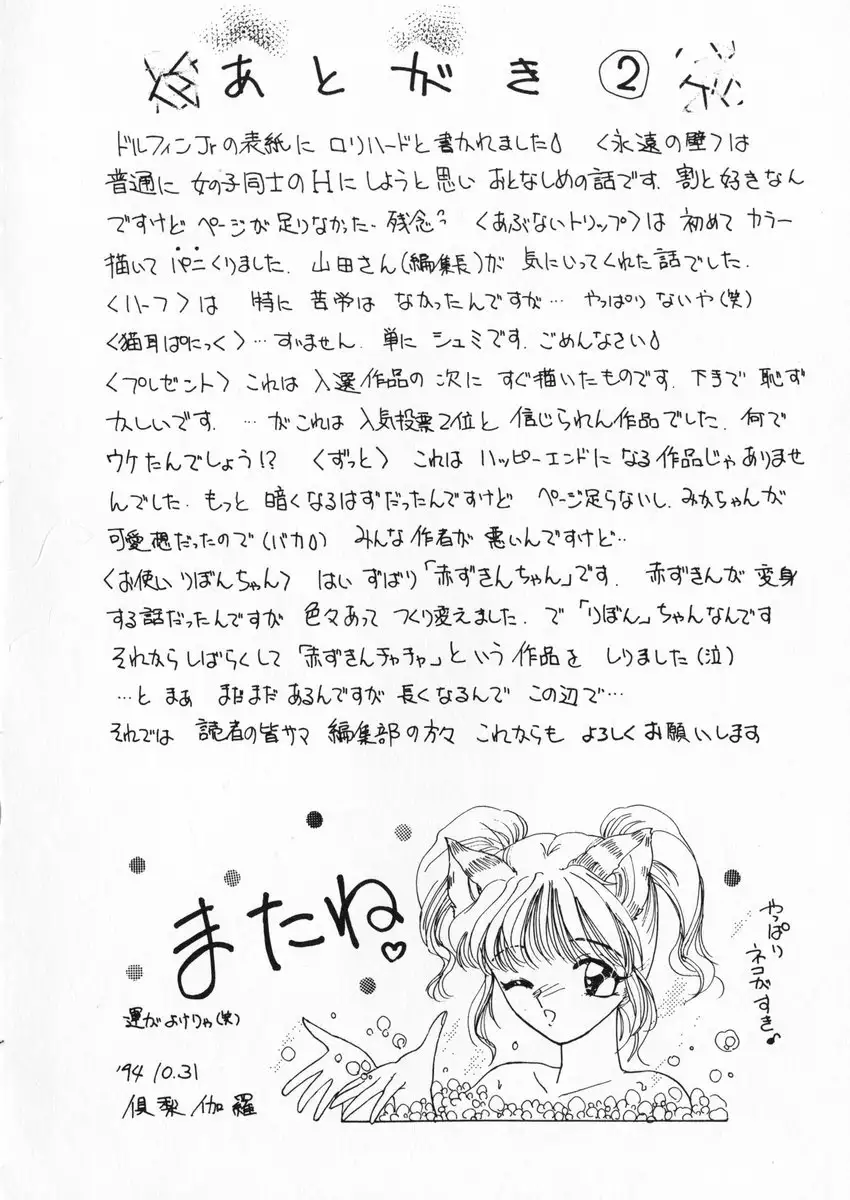 あとがき②
ドルフィンJrの表紙に ロリハードと書かれました♪ 〈永遠の壁〉は
普通に 女の子同士のHにしようと思い おとなしめの話です. 割と好きなん
ですけど ページが足りなかった. 残念? 〈あぶないトリップ〉は 初めて カラー
描いて パニくりました. 山田さん(編集長)が 気にいってくれた話でした.
〈ハーフ〉は 特に 苦労は なかったんですが… やっぱりないや(笑)
〈猫耳ぱにっく〉…すいません. 単に シュミです. ごめんなさい♪
〈プレゼント〉 これは 入選作品の 次に すぐ描いたものです. 下手で 恥ず
かしいです. …がこれは 人気投票2位と 信じられん作品でした. 何で
ウケたんでしょう!? 〈ずっと〉 これは ハッピーエンドに なる作品じゃありませ
んでした. もっと 暗くなるはずだったんですけど ページ足らないし. みかちゃんが
可愛想だったので(バカ♪) みんな作者が 悪いんですけど…
〈お使いりぼんちゃん〉 はい ずばり「赤ずきんちゃん」です. 赤ずきんが 変身
する話だったんですが 色々あって つくり変えました. で「りぼん」ちゃんなんです
それからしばらくして「赤ずきんチャチャ」という作品を しりました(泣)
…と まぁ まだまだ あるんですが 長くなるんで この辺で…
それでは 読者の皆サマ 編集部の方々 これからも よろしくお願いします
またね♡
やっぱり
ネコがすき♪
運がよけりゃ(笑)
'94 10.31
倶梨伽羅